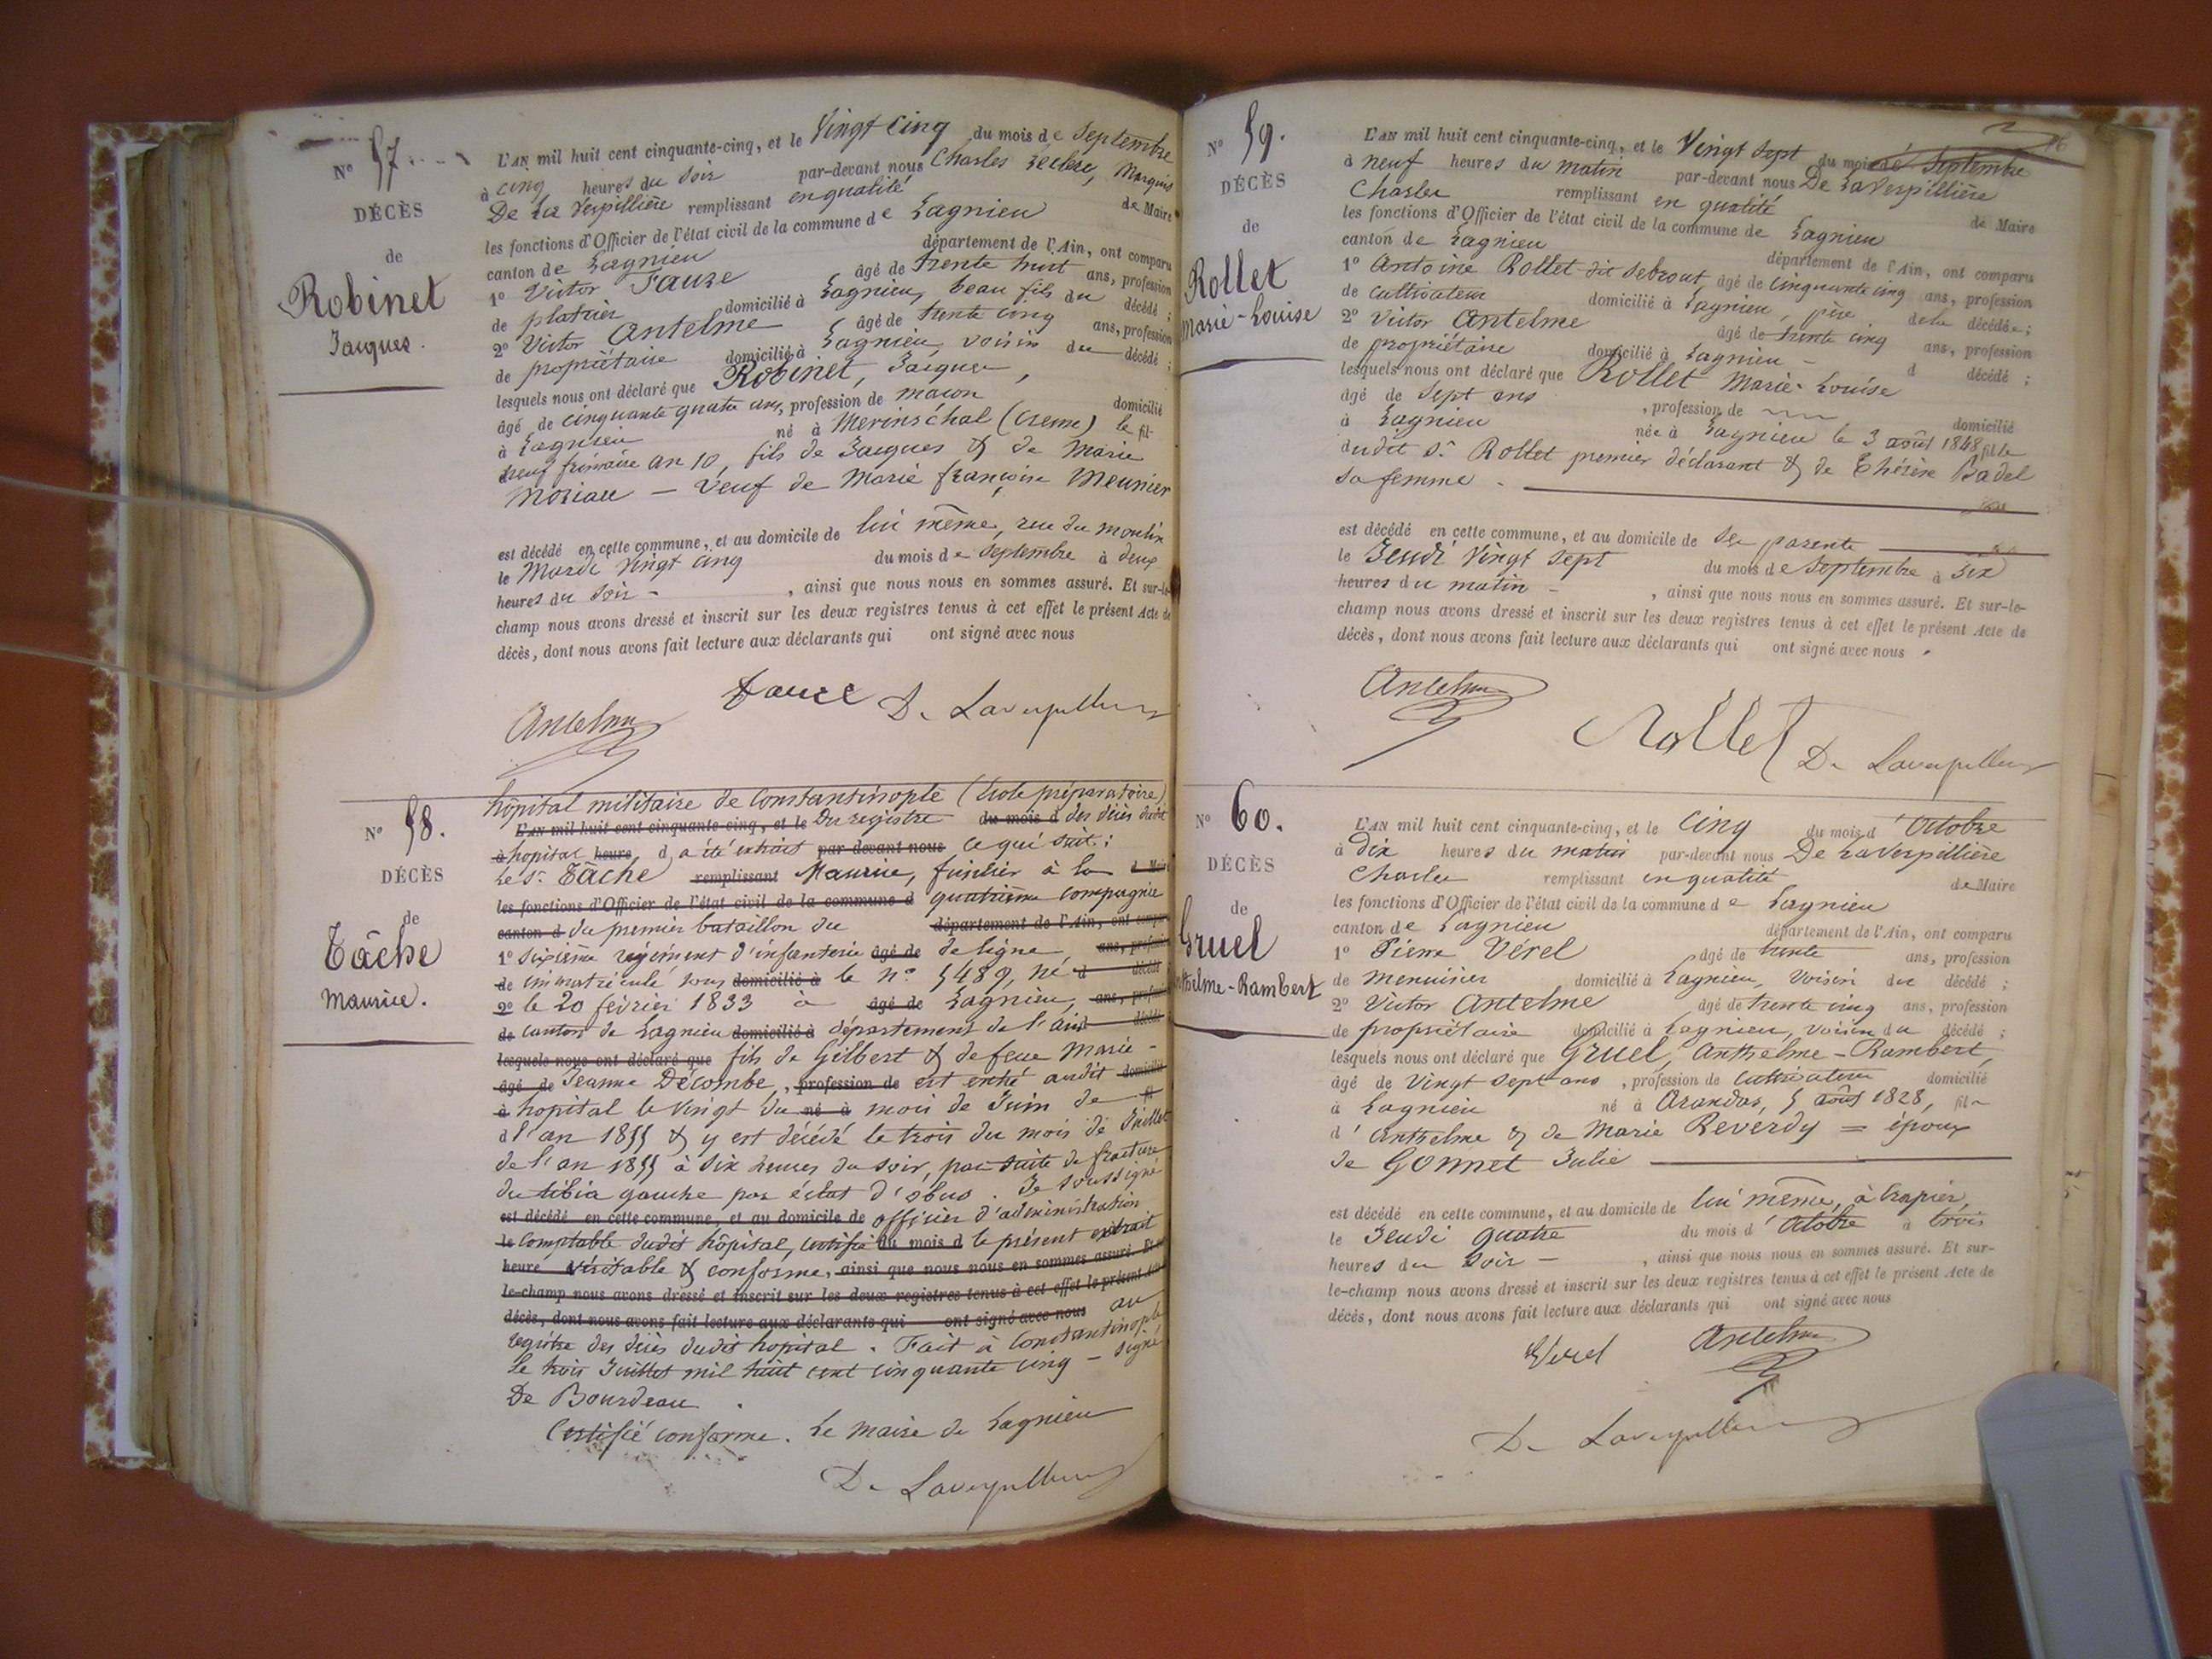 N° 57.
DÉCÈS
de
Robinet
Jacques.
L'AN mil huit cent cinquante-cinq, et le Vingt Cinq du mois de Septembre
à cinq heures du Soir par-devant nous Charles Marquis
De La Verpillière remplissant en qualité de Maire
les fonctions d'Officier de l'état civil de la commune de Lagnieu
canton de Lagnieu département de l'Ain, ont comparu
1° Victor Faure âgé de trente huit ans, profession
de platrier domicilié à Lagnieu, beau fils du décédé ;
2° Victor Antelme âgé de trente cinq ans, profession
de propriétaire domicilié à Lagnieu, voisin du décédé ;
lesquels nous ont déclaré que Robinet, Jacques,
âgé de cinquante quatre ans, profession de maçon domicilié
à Lagnieu né à Merinchal (Creuse) le fil
neuf frimaire an 10, fils de Jacques & de Marie
Moriau — Veuf de Marie françoise Meunier
est décédé en cette commune, et au domicile de lui même, rue du moulin
le Mardi Vingt cinq du mois de Septembre à deux
heures du Soir - , ainsi que nous nous en sommes assuré. Et sur-le-
champ nous avons dressé et inscrit sur les deux registres tenus à cet effet le présent Acte de
décès, dont nous avons fait lecture aux déclarants qui ont signé avec nous
Antelme Faure De Laverpillière
N° 58.
DÉCÈS
de
Tâche
Maurice.
hôpital militaire de Constantinople (École préparatoire)
L'AN mil huit cent cinquante-cinq, et le Du registre du mois d des décès dudit
à hopital heure d, a été extrait par-devant nous ce qui suit :
Le Sr. Tâche remplissant Maurice, fusilier à la d Maire
les fonctions d'Officier de l'état civil de la commune d quatrième compagnie
canton d du premier bataillon du département de l'Ain, ont comparu
1° Sixième régiment d'infanterie âgé de de ligne, ans, profession
de immatriculé sous domicilié à le n° 5489, né d décédé
2° le 20 février 1833 à âgé de Lagnieu, ans, profession
de canton de Lagnieu domicilié à département de l'Ain d décédé
lesquels nous ont déclaré que fils de Gilbert & de feue Marie -
âgé de Jeanne Décombe, profession de est entré audit domicilié
à hopital le Vingt du né à mois de Juin de fil
d l'an 1855 & y est décédé le trois du mois de Juillet
de l'an 1855 à Six heures du soir, par suite de fracture
du tibia gauche par éclat d'obus. Je soussigné
est décédé en cette commune, et au domicile de officier d'administration
le comptable dudit hôpital, certifie du mois d le présent extrait
heure véritable & conforme, ainsi que nous nous en sommes assuré. Et sur-
le-champ nous avons dressé et inscrit sur les deux registres tenus à cet effet le présent Acte
décès, dont nous avons fait lecture aux déclarants qui ont signé avec nous au
registre des décès dudit hopital. Fait à Constantinople
le trois Juillet mil huit cent cinquante cinq - signé
De Bourdeau.
Certifié conforme. Le maire de Lagnieu
De Laverpillière
N° 59.
DÉCÈS
de
Rollet
Marie-Louise
L'AN mil huit cent cinquante-cinq, et le Vingt Sept du mois de Septembre
à neuf heures du matin par-devant nous De LaVerpillière
Charles remplissant en qualité de Maire
les fonctions d'Officier de l'état civil de la commune de Lagnieu
canton de Lagnieu département de l'Ain, ont comparu
1° Antoine Rollet dit Sebrout, âgé de cinquante cinq ans, profession
de cultivateur domicilié à Lagnieu, père de la décédée ;
2° Victor Antelme âgé de trente cinq ans, profession
de propriétaire domicilié à Lagnieu - d décédé ;
lesquels nous ont déclaré que Rollet Marie-Louise
âgé de Sept ans , profession de domicilié
à Lagnieu née à Lagnieu le 3 août 1848 fille
dudit Sr. Rollet premier déclarant & de Thérèse Badel
sa femme.
est décédé en cette commune, et au domicile de ses parents
le Jeudi Vingt Sept du mois de Septembre à Six
heures du matin - , ainsi que nous nous en sommes assuré. Et sur-le-
champ nous avons dressé et inscrit sur les deux registres tenus à cet effet le présent Acte de
décès, dont nous avons fait lecture aux déclarants qui ont signé avec nous.
Antelme Rollet De Laverpillière
N° 60.
DÉCÈS
de
Gruel
Anthelme-Rambert
L'AN mil huit cent cinquante-cinq, et le Cinq du mois d'Octobre
à Dix heures du matin par-devant nous De LaVerpillière
Charles remplissant en qualité de Maire
les fonctions d'Officier de l'état civil de la commune de Lagnieu
canton de Lagnieu département de l'Ain, ont comparu
1° Pierre Vérel âgé de trente ans, profession
de menuisier domicilié à Lagnieu, voisin du décédé ;
2° Victor Antelme âgé de trente cinq ans, profession
de propriétaire domicilié à Lagnieu, voisin du décédé ;
lesquels nous ont déclaré que Gruel, Anthelme-Rambert,
âgé de Vingt Sept ans , profession de Cultivateur domicilié
à Lagnieu né à Arandas, 5 août 1828, fils
d'Anthelme & de Marie Reverdy = époux
de Gonnet Julie
est décédé en cette commune, et au domicile de lui même, à Crapier,
le Jeudi quatre du mois d'Octobre à trois
heures du Soir - , ainsi que nous nous en sommes assuré. Et sur-
le-champ nous avons dressé et inscrit sur les deux registres tenus à cet effet le présent Acte de
décès, dont nous avons fait lecture aux déclarants qui ont signé avec nous
Vérel Antelme
De Laverpillière